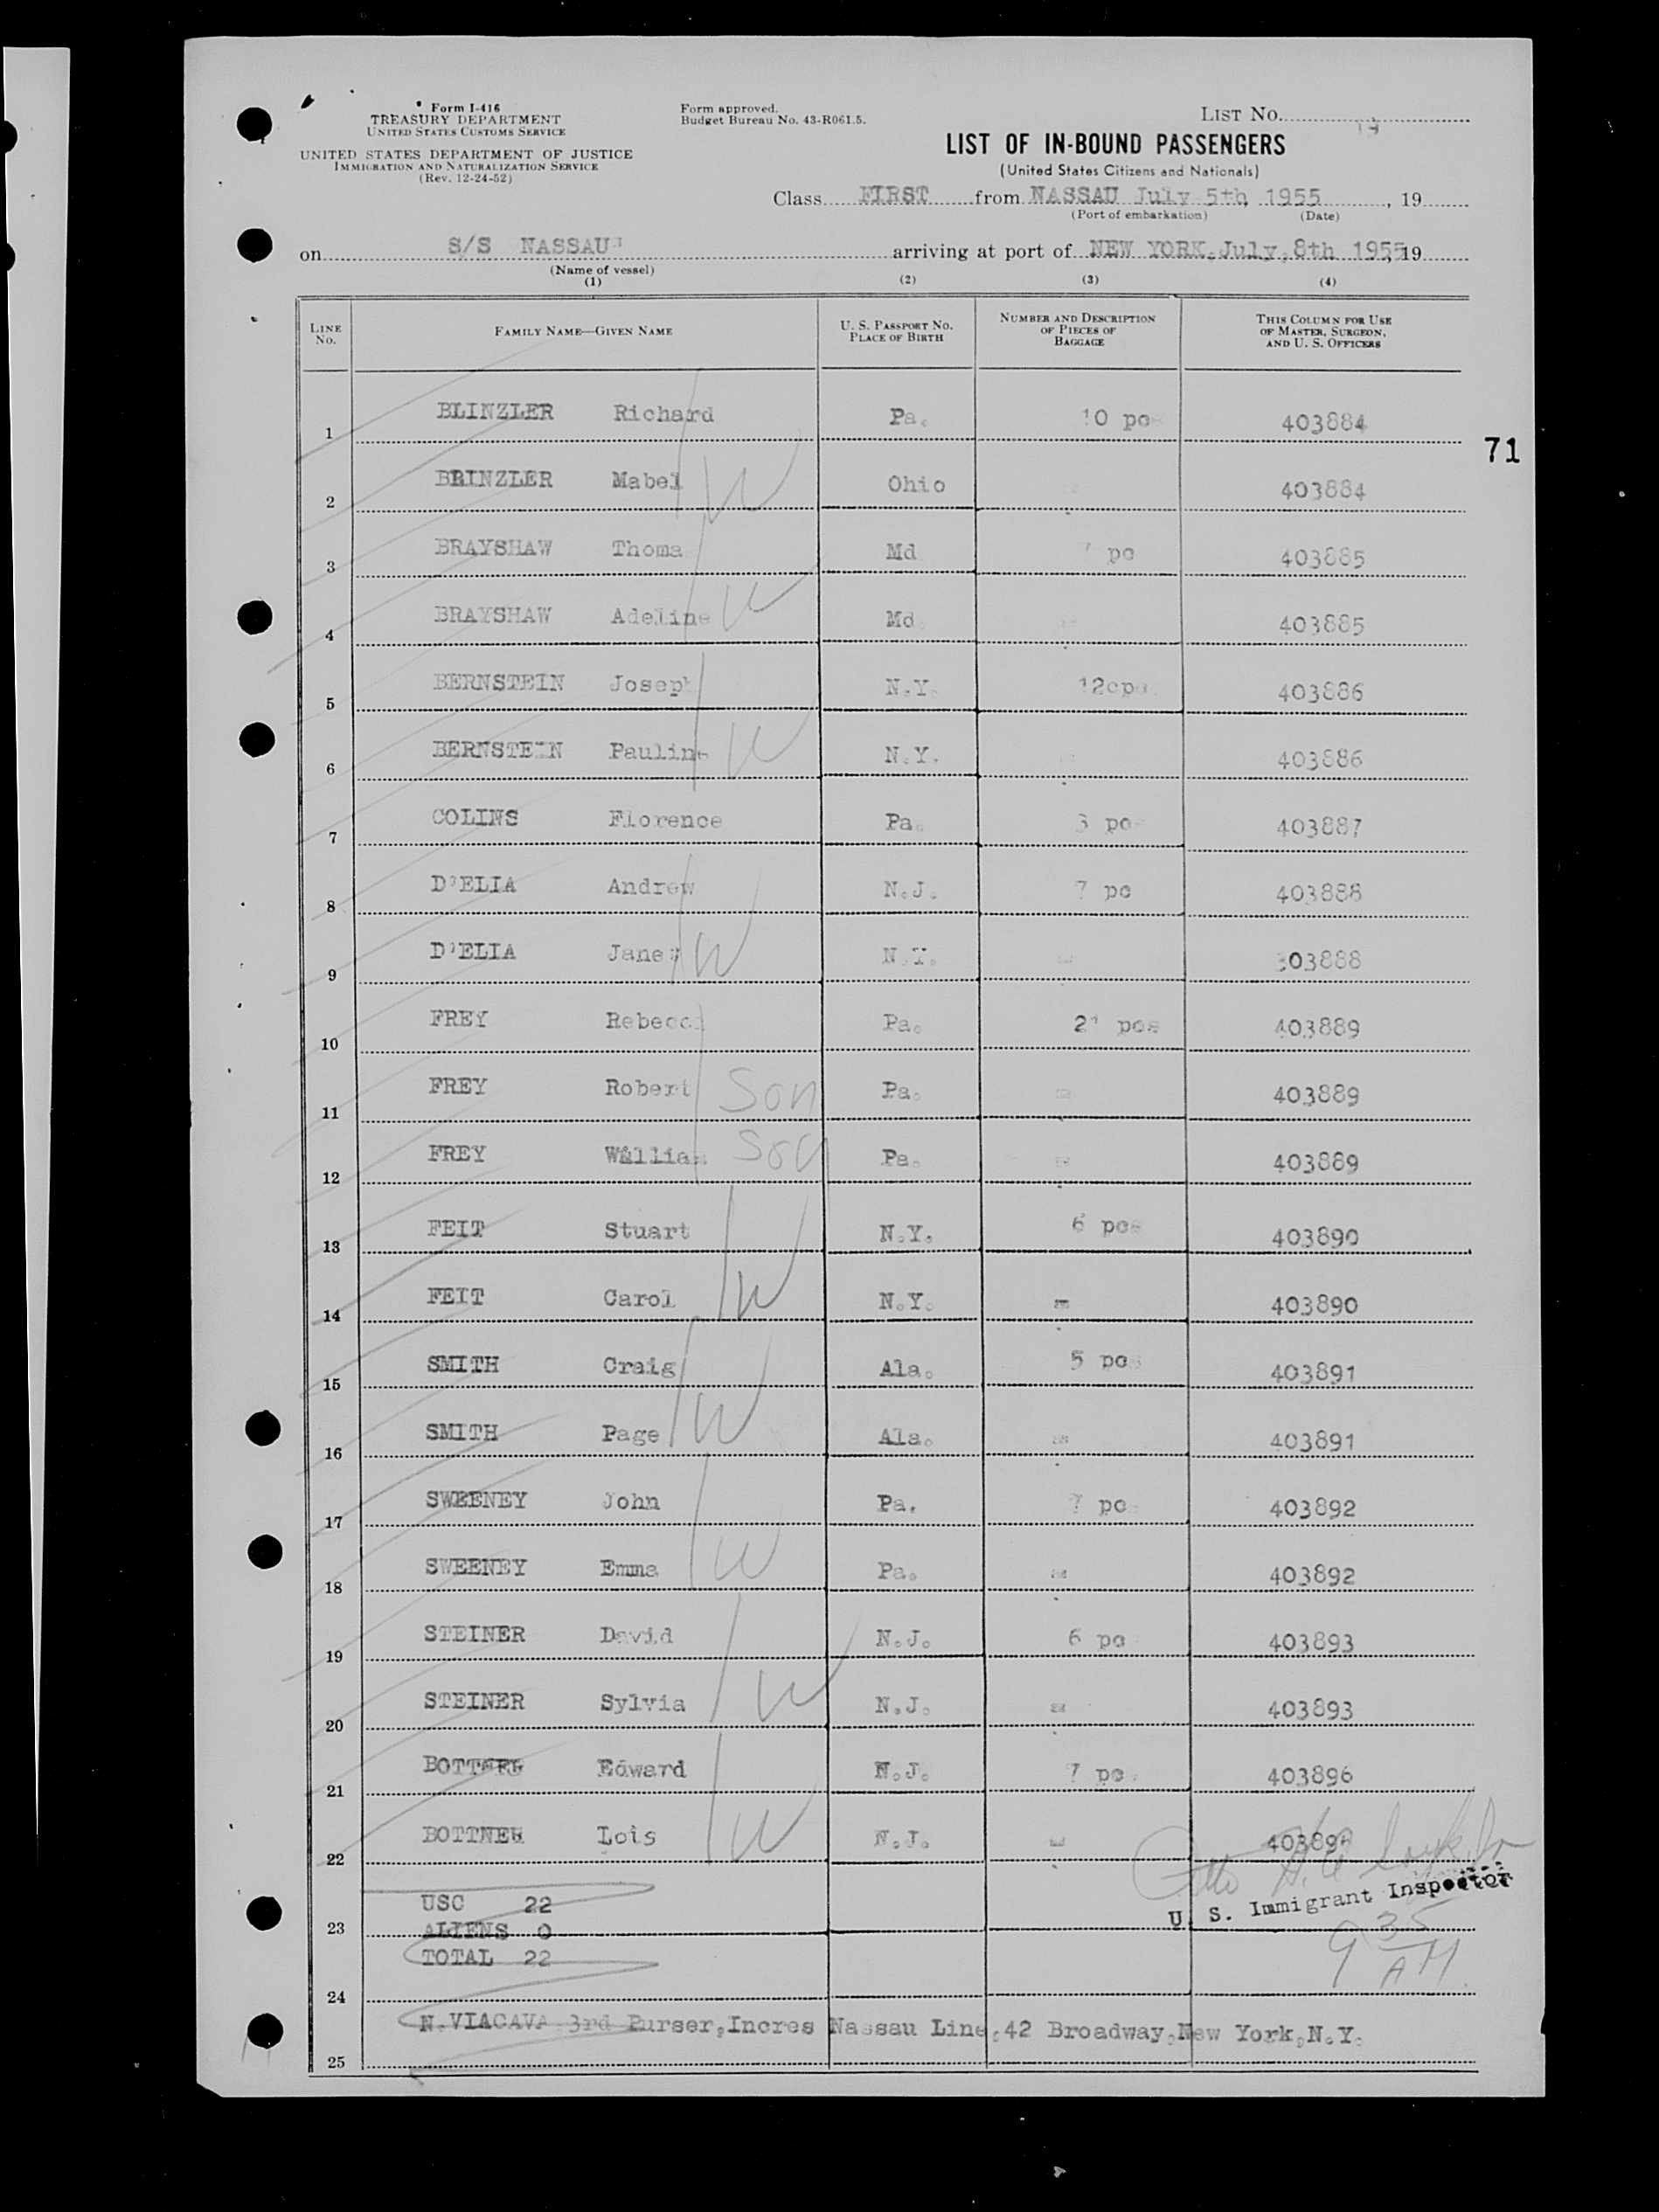 Form I-416
TREASURY DEPARTMENT
UNITED STATES CUSTOMS SERVICE
UNITED STATES DEPARTMENT OF JUSTICE
IMMIGRATION AND NATURALIZATION SERVICE
(Rev. 12-24-52)
Form approved.
Budget Bureau No. 43-R061.5.
LIST No.
LIST OF IN-BOUND PASSENGERS
(United States Citizens and Nationals)
Class FIRST from NASSAU July 5th 1955, 19
(Port of embarkation) (Date)
on S/S NASSAU arriving at port of NEW YORK, July, 8th 1955 19
(Name of vessel)
(1) (2) (3) (4)
LINE No. FAMILY NAME—GIVEN NAME U. S. PASSPORT No. PLACE OF BIRTH NUMBER AND DESCRIPTION OF PIECES OF BAGGAGE THIS COLUMN FOR USE OF MASTER, SURGEON, AND U. S. OFFICERS
1 BLINZLER Richard Pa. 10 pcs 403884
71
2 BRINZLER Mabel W Ohio 403884
3 BRAYSHAW Thoma Md 7 pc 403885
4 BRAYSHAW Adeline W Md 403885
5 BERNSTEIN Joseph N.Y. 12cps 403886
6 BERNSTEIN Pauline W N.Y. 403886
7 COLINS Florence Pa. 3 pc 403887
8 D'ELIA Andrew N.J. 7 pc 403888
9 D'ELIA Janet W N.Y. 303888
10 FREY Rebecc Pa. 21 pcs 403889
11 FREY Robert Son Pa. 403889
12 FREY William Son Pa. 403889
13 FEIT Stuart N.Y. 6 pcs 403890
14 FEIT Carol W N.Y. 403890
15 SMITH Craig Ala. 5 pcs 403891
16 SMITH Page W Ala. 403891
17 SWEENEY John Pa. 7 pc 403892
18 SWEENEY Emma W Pa. 403892
19 STEINER David N.J. 6 pc 403893
20 STEINER Sylvia W N.J. 403893
21 BOTTNER Edward N.J. 7 pc. 403896
22 BOTTNER Lois W N.J. 403896
USC 22
U. S. Immigrant Inspector
23 ALIENS 0
TOTAL 22
9 35 AM
24
N. VIACAVA 3rd Purser, Incres Nassau Line, 42 Broadway, New York, N.Y.
25